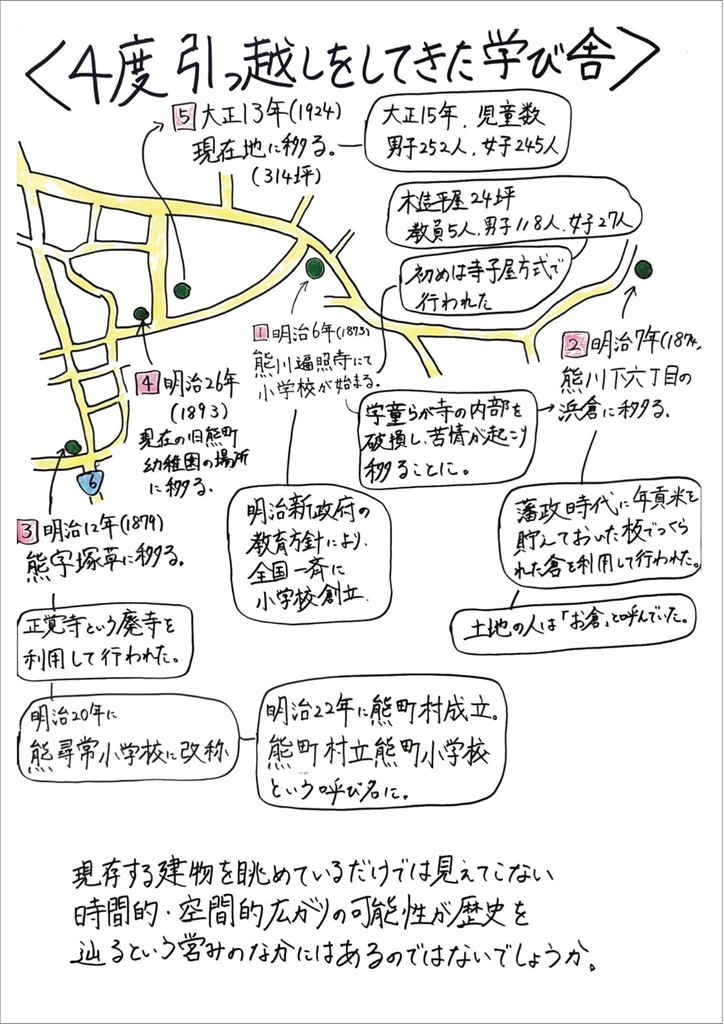 〈4度引っ越しをしてきた学び舎〉
5 大正13年(1924)
現在地に移る。
(314坪)
大正15年、児童数
男子252人、女子245人
木造平屋24坪
教員5人、男子118人、女子27人
初めは寺子屋方式で
行われた
1 明治6年(1873)
熊川遍照寺にて
小学校が始まる。
2 明治7年(1874
熊川下六丁目の
浜倉に移る。
学童らが寺の内部を
破損し、苦情が起こり
移ることに。
4 明治26年
(1893)
現在の旧熊町
幼稚園の場所
に移る。
6
明治新政府の
教育方針により、
全国一斉に
小学校創立
藩政時代に年貢米を
貯えておいた板でつく
られた倉を利用して行われた。
土地の人は「お倉」と呼んでいた。
3 明治12年(1879)
熊字塚草に移る。
正覚寺という廃寺を
利用して行われた。
明治20年に
熊尋常小学校に改称
明治22年に熊町村成立。
熊町村立熊町小学校
という呼び名に。
現存する建物を眺めているだけでは見えてこない
時間的・空間的広がりの可能性が歴史を
辿るという営みのなかにはあるのではないでしょうか。